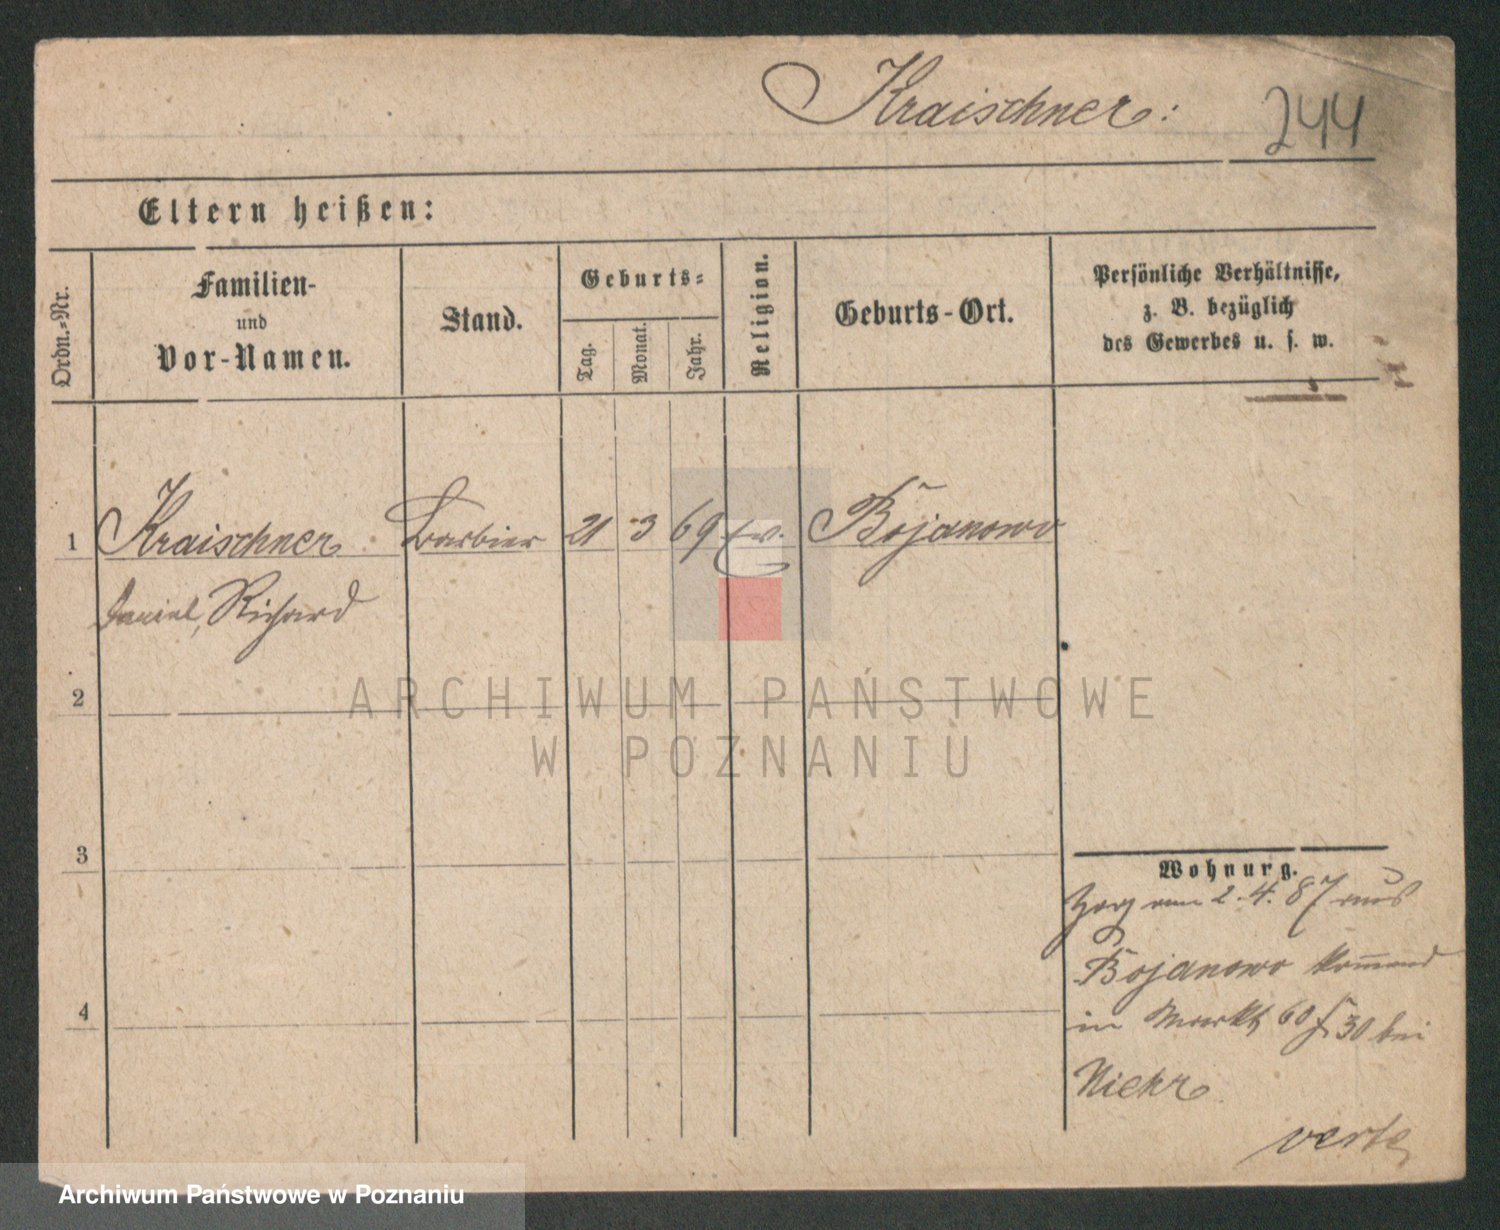 Kraischner:
244
Eltern heißen:
Ordn.-Nr.
Familien-
und
Vor-Namen.
Stand.
Geburts-
Tag.
Monat.
Jahr.
Religion.
Geburts-Ort.
Persönliche Verhältnisse,
z. B. bezüglich
des Gewerbes u. s. w.
1 Kraischner Barbier 21 3 69 ev. Bojanowo
Daniel, Richard
2
ARCHIWUM PAŃSTWOWE
W POZNANIU
3
4
Wohnung.
Zog am 2.4.87 aus
Bojanowo kommend
in Markt 60 30 bei
Niekr
verte
Archiwum Państwowe w Poznaniu